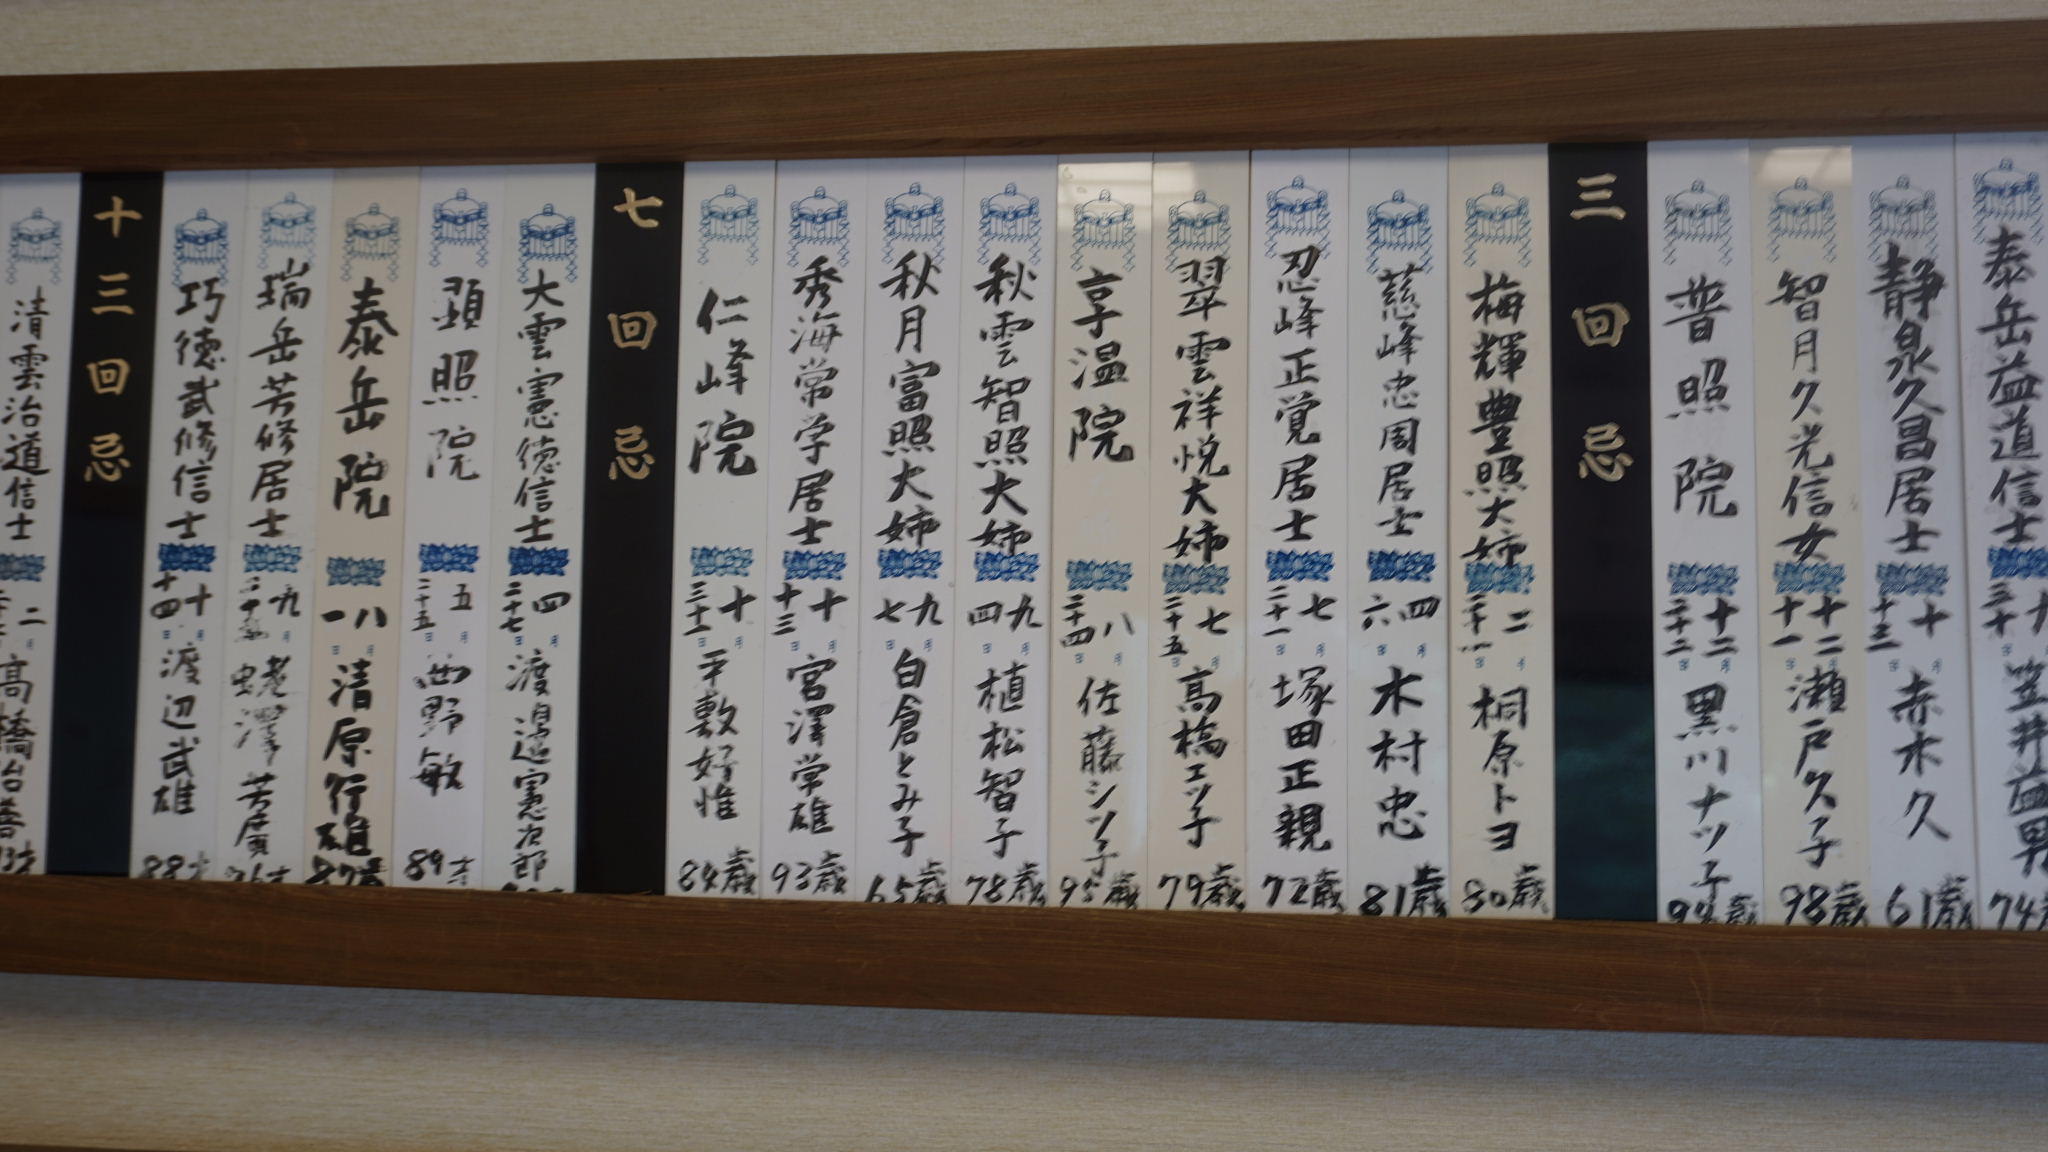 泰岳益道信士
笠井益男
74
静泉久昌居士
十月十三日
赤木久
61歳
智月久光信女
十二月十一日
瀬戸久子
98歳
普照院
十二月二十二日
黒川ナツ子
歳
三回忌
梅輝豊照大姉
二月
桐原トヨ
80歳
慈峰忠周居士
四月六日
木村忠
81歳
忍峰正覚居士
七月二十一日
塚田正親
72歳
翠雲祥悦大姉
七月二十五日
高橋エツ子
79歳
享温院
八月二十四日
佐藤シツ子
95歳
秋雲智照大姉
九月四日
植松智子
78歳
秋月富照大姉
九月七日
白倉とみ子
65歳
秀海常学居士
十月十三日
宮澤学雄
93歳
仁峰院
十月三十一日
平敷好惟
84歳
七回忌
大雲憲徳信士
四月二十七日
渡邉憲次郎
顕照院
五月二十五日
西野敏
89才
泰岳院
八月一日
清原行雄
87歳
瑞岳芳修居士
九月
芳廣
巧徳武修信士
十月十四日
渡辺武雄
88才
十三回忌
清雲治道信士
二月
高橋治善